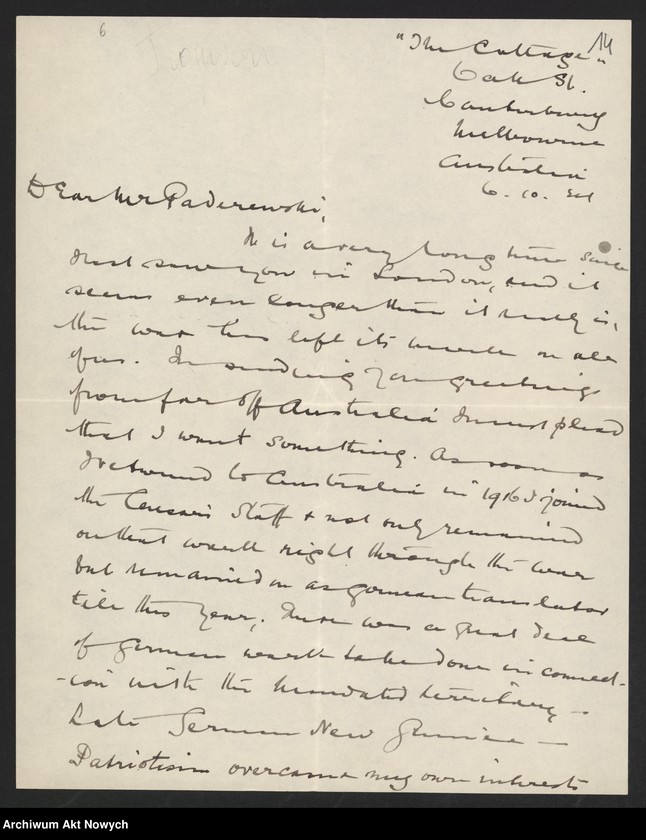 6
14
"The Cottage"
Oak St.
Canterbury
Melbourne
Australia
6. 10.
Dear Mr Paderewski,
It is a very long time since
I last saw you in London, and it
seems even longer than it really is,
the war has left its mark on all
of us. In sending you greetings
from far off Australia I must plead
that I want something. As soon as
I returned to Australia in 1916 I joined
the Censor's Staff & not only remained
on that work right through the war
but remained on as german translator
till this year, There was a great deal
of german work to be done in connect-
-ion with the mandated territory —
Late German New Guinea —
Patriotism overcame my own interests
Archiwum Akt Nowych